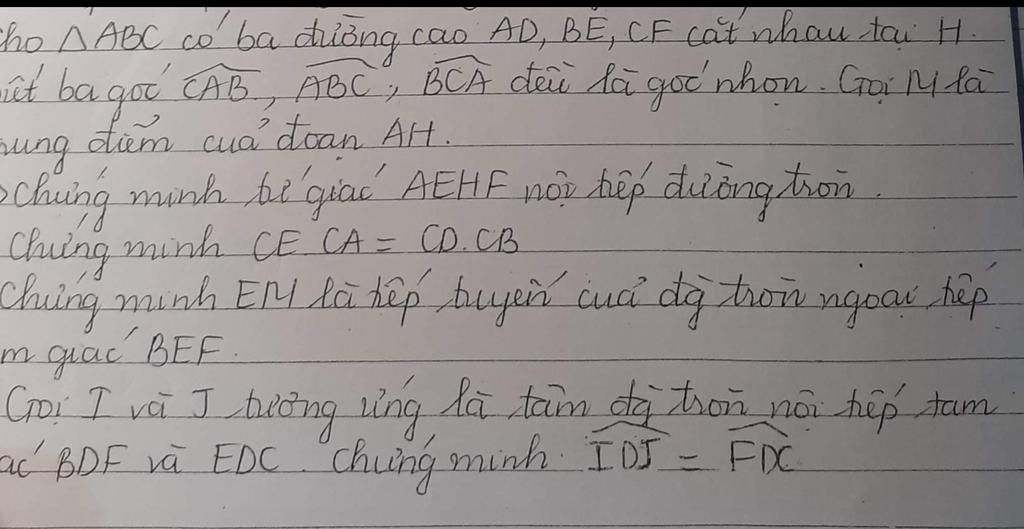 ho △ABC có ba đường cao AD, BE, CF cắt nhau tại H.
iết ba góc CAB, ABC, BCA đều là góc nhọn. Gọi M là
ung điểm của đoạn AH.
Chứng minh tứ giác AEHF nội tiếp đường tròn.
Chứng minh CE.CA = CD.CB
Chứng minh EM là tiếp tuyến của đg tròn ngoại tiếp
m giác BEF.
Gọi I và J tương ứng là tâm đg tròn nội tiếp tam
ác BDF và EDC. Chứng minh. IDJ = FDC